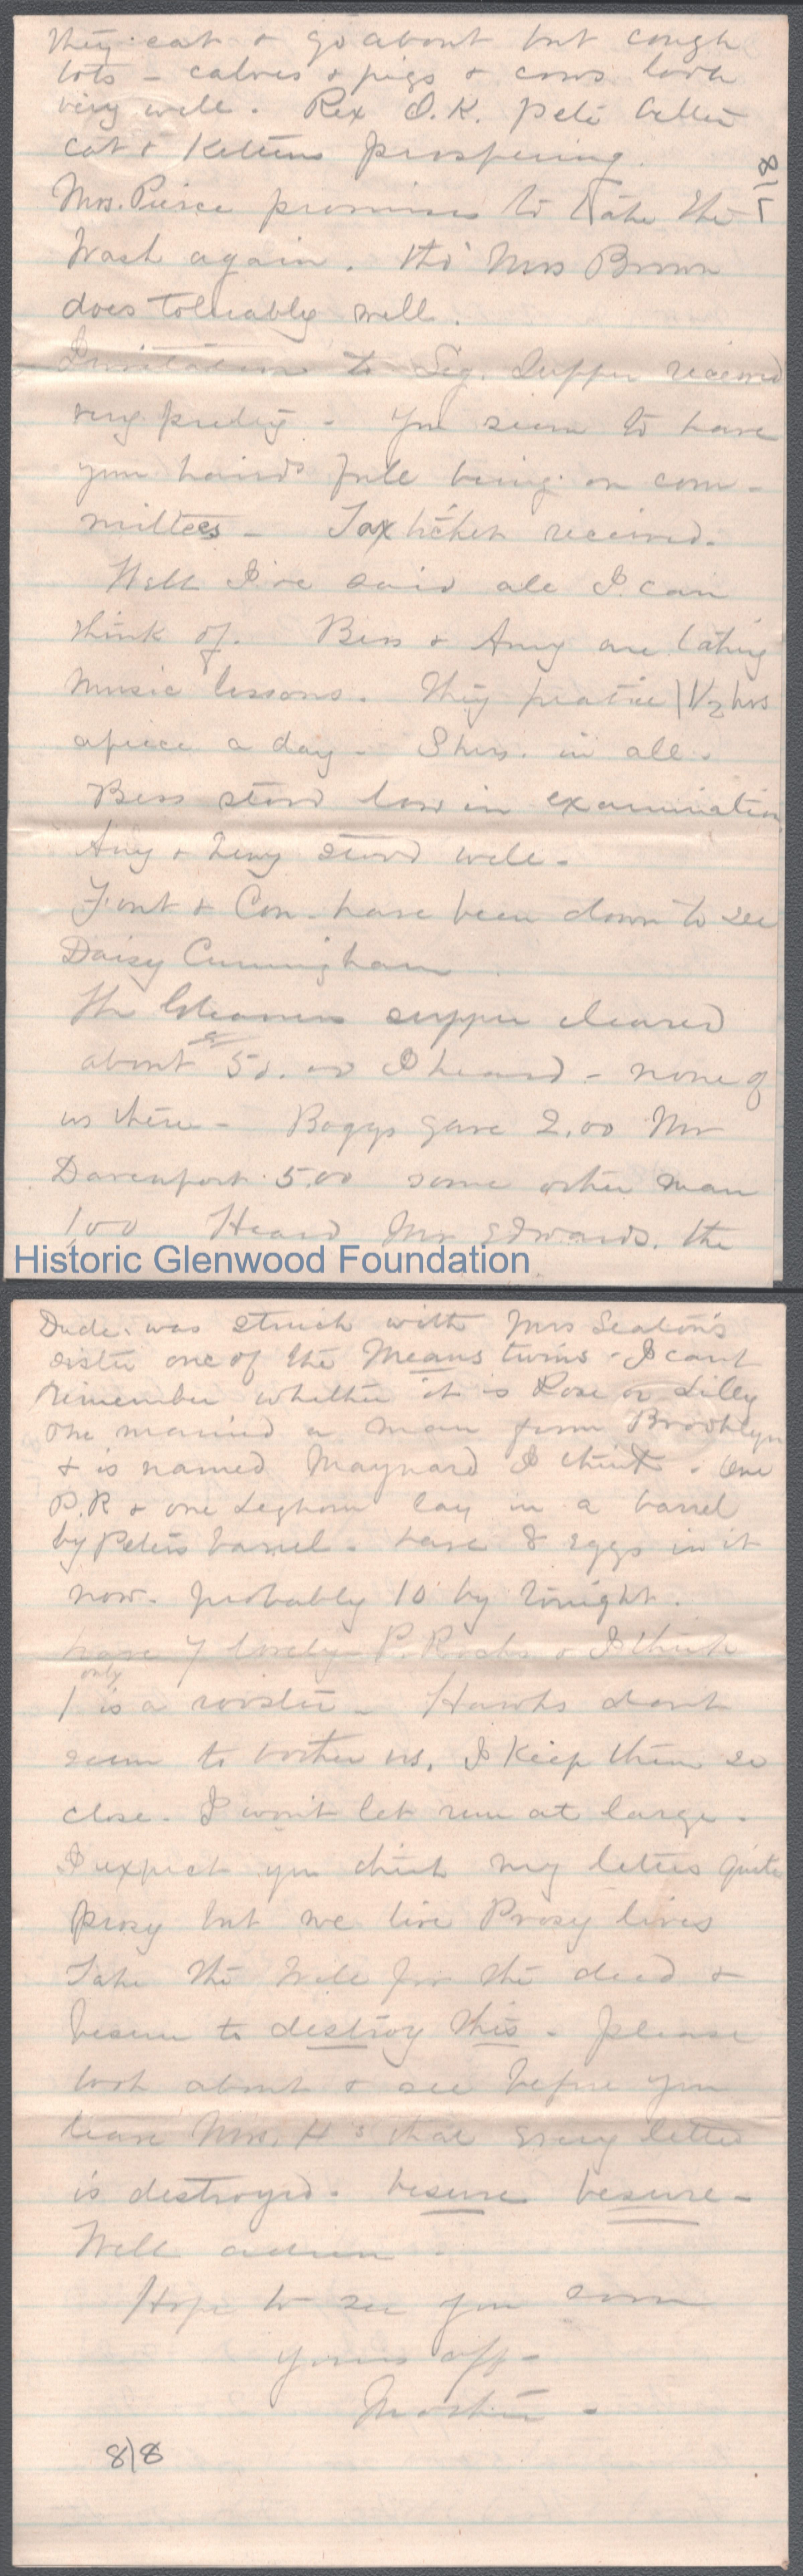 they eat & go about but cough
lots - calves & pigs & cows look
very well. Rex O.K. Pete better
cat & Kittens prospering.
Mrs. Pierce promises to take the
Wash again. tho' Mrs Brown
does tolerably well.
Invitation to Leg. Supper received
very pretty - You seem to have
your hands full being on com-
mittees - Tax ticket received.
Well I've said all I can
think of. Bess & Amy are taking
music lessons. They practice 1 1/2 hrs
apiece a day - 3 hrs. in all.
Bess stood low in examination
Amy & stood well -
Font & Con have been down to see
Daisy Cunningham
The Gleaners supper cleared
about 50. so I heard - none of
us there - Boggs gave 2.00 Mr
Davenport 5.00 some other man
1.00 Heard Mr Edwards, the
Historic Glenwood Foundation
8/7
Dude. was struck with Mrs Seaton's
sister one of the Means twins - I cant
remember whether it is Rose or Lilly
One married a man from Brooklyn
& is named Maynard I think. One
P.R & one Leghorn lay in a barrel
by Peters barrel - have 8 eggs in it
now. probably 10 by tonight.
have 7 lovely P. Rocks & I think
only
1 is a rooster - Hawks dont
seem to bother us, I keep them so
close. I won't let run at large.
I expect you think my letters quite
prosy but we live Prosy lives
Take the will for the deed &
besure to destroy this. please
look about & see before you
leave Mrs. H's that every letter
is destroyed. besure besure -
Well adieu.
Hope to see you soon
yours aff -
Mother -
8/8